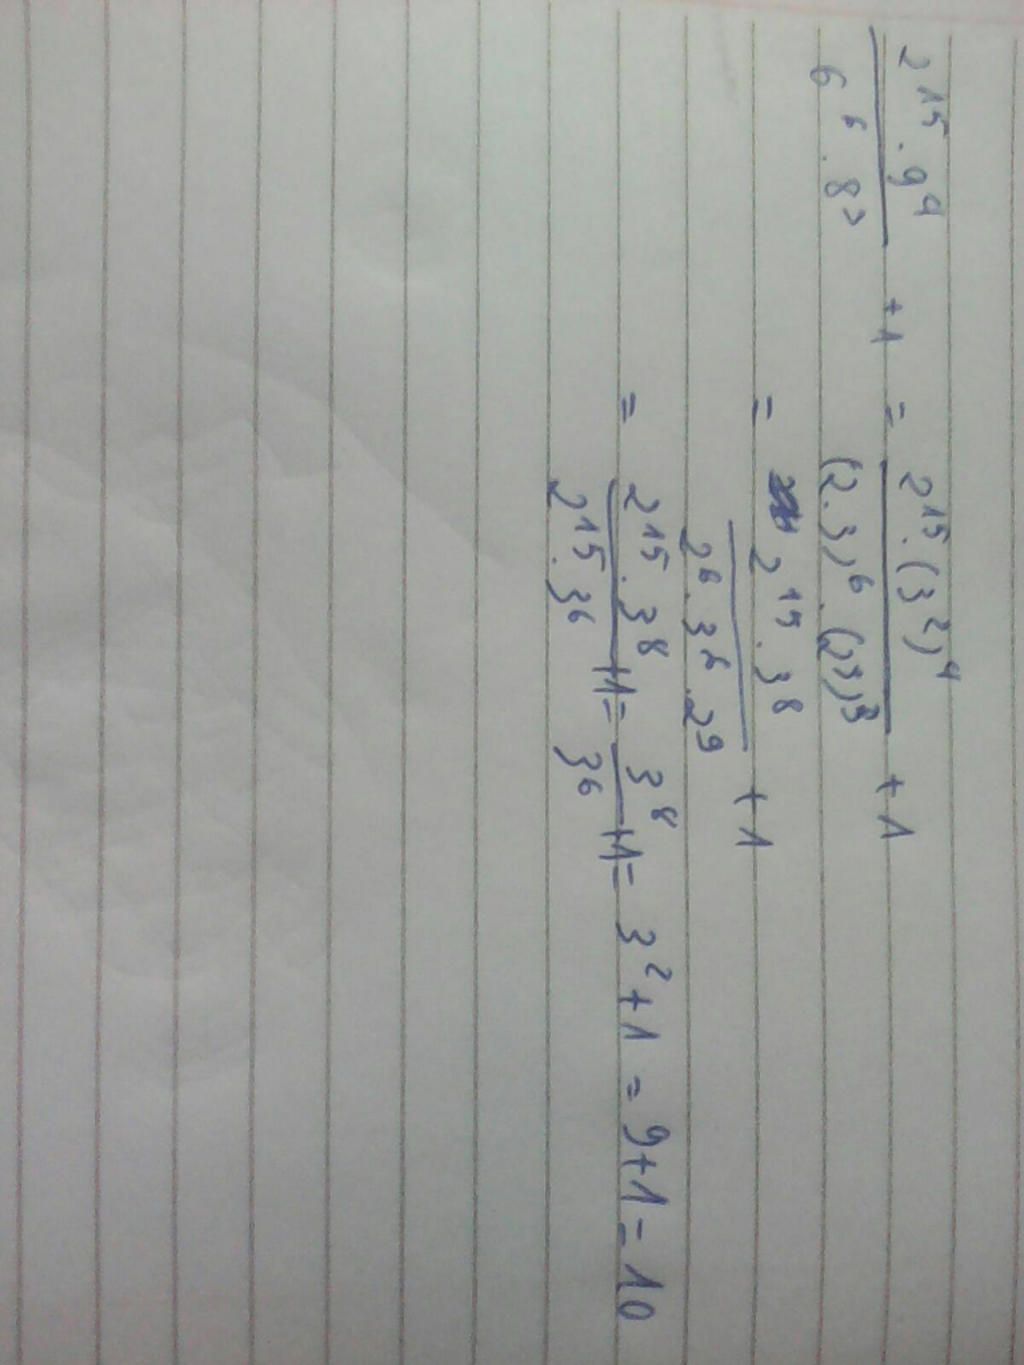 2¹⁵ . 9⁴ / 6⁶ . 8³ + 1 = 2¹⁵ . (3²)⁴ / (2 . 3)⁶ . (2³)³ + 1
= 2¹⁵ . 3⁸ / 2⁶ . 3⁶ . 2⁹ + 1
= 2¹⁵ . 3⁸ / 2¹⁵ . 3⁶ + 1 = 3⁸ / 3⁶ + 1 = 3² + 1 = 9 + 1 = 10